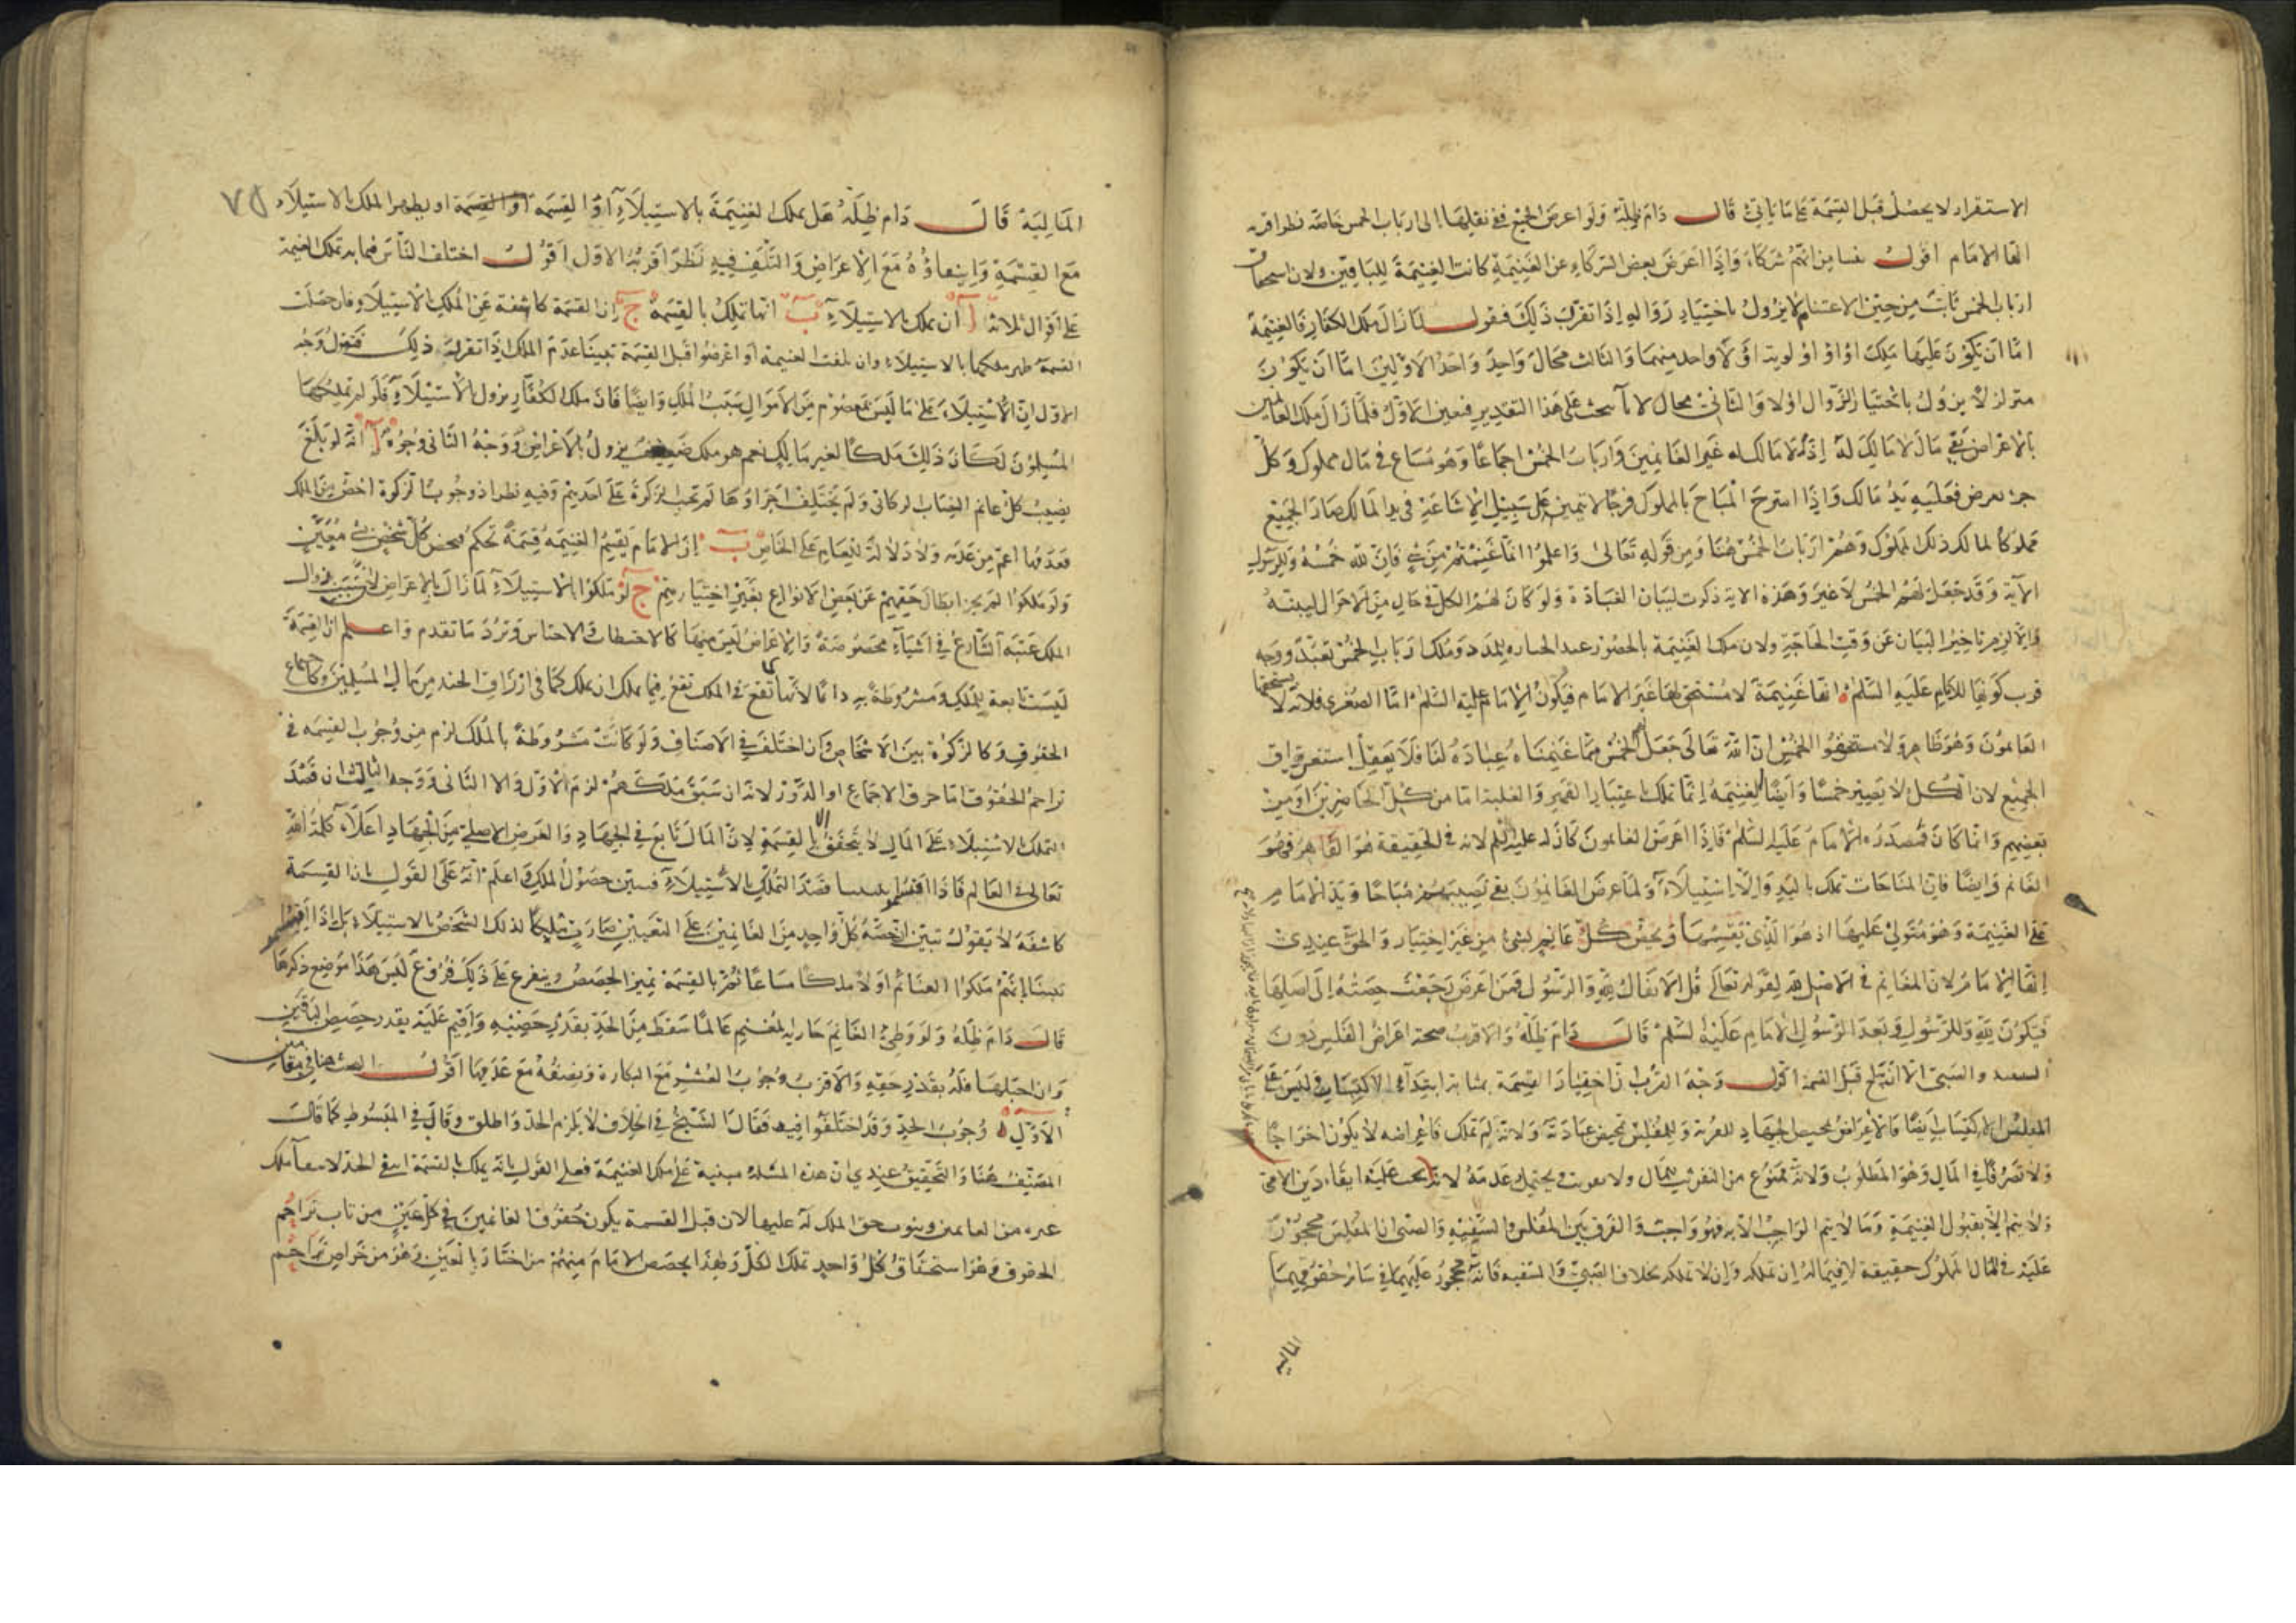 الاستقرار لا يحصل قبل القسمة على ما ياتي قال دام ظله ولو اعرض الجميع ففي نقلها الى ارباب الخمس خاصة نظر اقربه
انها للامام اقول نشا من انهم شركاء واذا اعرض بعض الشركاء عن الغنيمة كانت الغنيمة للباقين ولان استحقاق
ارباب الخمس ثابت من حين الاغتنام لا يزول باختيار زواله اذا تقرر ذلك فنقول لما زال ملك الكفار فالغنيمة
اما ان يكون عليها ملك او اولوية او لا واحد منهما والثالث محال واحد الاولين اما ان يكون
متزلزلا يزول باختيار الزوال او لا والثاني محال لانا نبحث على هذا التقدير فتعين الاول فلما زال ملك الغانمين
بالاعراض بقي مال لا مالك له اذ لا مالك له غير الغانمين وارباب الخمس اجماعا وهو مشاع في مال مملوك وكل
جزء يعرض فعليه يد مالك واذا استرج المباح بالمملوك مزجا لا يتميز على سبيل الاشاعة في يد المالك صار الجميع
مملوكا لمالك ذلك المملوك وهم ارباب الخمس هنا ومن قوله تعالى واعلموا انما غنمتم من شي فان لله خمسه وللرسول
الآية وقد جعل لهم الخمس لا غير وهذه الآية ذكرت لبيان العبادة ولو كان لهم الكل في حال من الاحوال لبينه
والا لزم تاخير البيان عن وقت الحاجة ولان ملك الغنيمة بالحضور عند الحيازة للمدد وملك ارباب الخمس تعبد ووجه
قرب كونها للامام عليه السلم انها غنيمة لا مستحق لها غير الامام فيكون للامام عليه السلم اما الصغرى فلانه لا يستحقها
الغانمون وهو ظاهر ولا مستحقوا الخمس لان الله تعالى جعل لهم الخمس مما غنمناه عبادة لنا فلا يعقل استغراق
الجميع لان الكل لا يصير خمسا وايضا الغنيمة انما تملك باعتبار القهر والغلبة اما من كل الحاضرين او من
بعضهم وانما كان مصدره الامام عليه السلم فاذا اعرض الغانمون كان له عليه السلم لانه في الحقيقة هو القاهر فهو
الغانم وايضا فان المباحات تملك باليد والاستيلاء ولما عرض الغانمون بقي نصيبهم مباحا ويد الامام
على الغنيمة وهو متولي عليها اذ هو الذي يقسمها ويخص كل غانم بشي من غير اختيار والحق عندي
انها للامام لان المغانم في الاصل لله لقوله تعالى قل الانفال لله والرسول فمن اعرض رجعت حصته الى اصلها
فيكون لله وللرسول وبعد الرسول للامام عليه السلم قال دام ظله والاقرب صحة اعراض المفلس دون
السفيه والصبي الا انه بلغ قبل القسمة اقول وجه القرب ان اختيار القسمة بمثابة ابتداء الاكتساب وليس على
المفلس الاكتساب وايضا فالاعراض محيص الجهاد للقربة وللمفلس تمحيض عبادته ولانه لم يملك فاعراضه لا يكون اخراجا
ولا تصرفا في المال وهو المطلوب ولانه ممنوع من التفويت بمال ولا تفويت ويحتمل عدمه لانه يجب عليه ايفاء دين الادمي
ولا يتم الا بقبول الغنيمة وما لا يتم الواجب الا به فهو واجب والفرق بين المفلس والسفيه والصبي ان المفلس محجور
عليه في المال المملوك حقيقة لا فيما له ان تملكه وان لا تملكه بخلاف الصبي والسفيه فانه محجور عليهما في سائر حقوقهما
المالية
٧٥
المالية قال دام ظله هل يملك الغنيمة بالاستيلاء او القسمة او القسمة او يظهر الملك بالاستيلاء
مع القسمة وانتفاؤه مع الاعراض والتلف فيه نظر اقربه الاول اقول اختلف الناس فيما به تملك الغنيمة
على اقوال ثلاثة ا ان تملك بالاستيلاء ب انها تملك بالقسمة ج ان القسمة كاشفة عن الملك بالاستيلاء فان حصلت
القسمة ظهر ملكها بالاستيلاء وان تلفت الغنيمة او اعرضوا قبل القسمة تبينا عدم الملك اذا تقرر ذلك فنقول وجه
الاول ان الاستيلاء على ما ليس بمعصوم من الاموال سبب الملك وايضا فان ملك الكفار يزول بالاستيلاء فلو لم تملكها
المسلمون لكان ذلك ملكا لغير مالك نعم هو ملك ضعيف يزول بالاعراض ووجه الثاني وجوه ا انه لو بلغ
نصيب كل غانم النصاب الزكاتي ولم يختلف اجزاؤها لم تجب الزكوة على احد منهم وفيه نظر اذ وجوب الزكوة اخص من الملك
فعدمها اعم من عدمه ولا دلالة للعام على الخاص ب ان الامام يقسم الغنيمة قسمة تحكم فيخص كل شخص بشي معين
ولو ملكوا لم يجز ابطال حقهم عن بعض الانواع بغير اختيارهم ج لو ملكوا بالاستيلاء لما زال بالاعراض لان سبب زوال
الملك عينه الشارع في اشياء مخصوصة والاعراض ليس منها كالاحتطاب والاحتشاش ويرد ما تقدم واعلم ان القسمة
ليست تابعة للملك ومشروطة به دائما لانها كما تقع في الملك تقع فيما يملك ان يملك كما في ارزاق الجند من مال المسلمين وكاجماع
الحقوق وكالزكوة بين الاشخاص وان اختلف في الاصناف ولو كانت مشروطة بالملك لزم من وجوب القسمة في
تزاحم الحقوق اما خرق الاجماع او الدور لانه ان سبق ملكهم لزم الاول والا الثاني ووجه الثالث ان قصد
التملك بالاستيلاء على المال لا يتحقق الا بالقسمة لان المال تابع في الجهاد والغرض الاصلي من الجهاد اعلاء كلمة الله
تعالى في العالم فاذا اقتسموا تبينا قصد التملك بالاستيلاء فتبين حصول الملك واعلم انه على القول بان القسمة
كاشفة لا يقول تبين ان حصة كل واحد من الغانمين على التعيين صارت ملكا لذلك الشخص بالاستيلاء بل اذا اقتسموا
تبينا انهم ملكوا الغنائم اولا ملكا مشاعا ثم بالقسمة تميز الحصص ويتفرع على ذلك فروع ليس هذا موضع ذكرها
قال دام ظله ولو وطئ الغانم جارية المغنم عالما سقط من الحد بقدر حصته واقيم عليه بقدر حصص الباقين
وان احبلها فلم بقدر حقه والاقرب وجوب العشر مع البكارة ونصفه مع عدمها اقول البحث هنا في مقامين
الاول وجوب الحد وقد اختلفوا فيه فقال الشيخ في الخلاف لا يلزم الحد واطلق وقال في المبسوط كما قال
المصنف هنا والتحقيق عندي ان هذه المسئلة مبنية على ملك الغنيمة فعلى القول بانه يملك بالقسمة انتفى الحد لانتفاء ملك
غيره من الغانمين وثبوت حق الملك له عليها لان قبل القسمة يكون حقوق الغانمين في كل عين من باب تزاحم
الحقوق وهو استحقاق كل واحد تملك الكل ولهذا يخصص الامام منهم من اختار بالعين وهو من خواص تزاحم